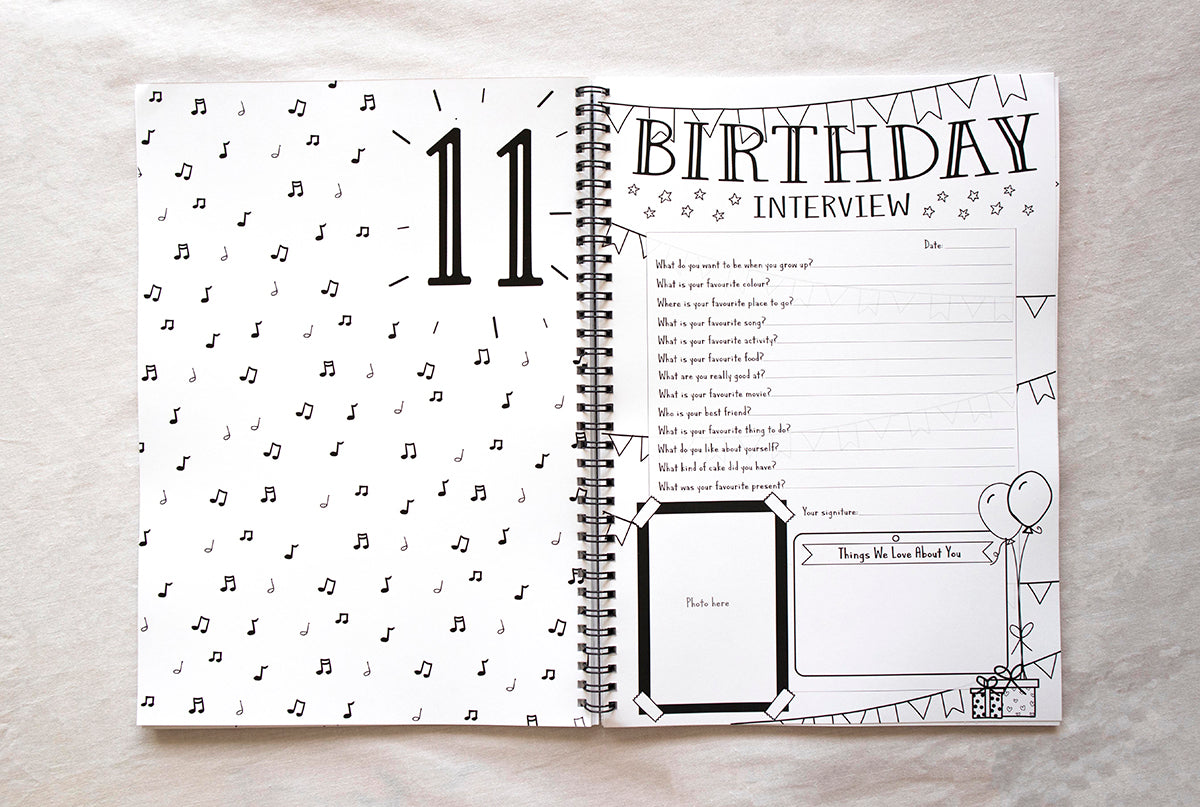 11
BIRTHDAY
INTERVIEW
Date:
What do you want to be when you grow up?
What is your favourite colour?
Where is your favourite place to go?
What is your favourite song?
What is your favourite activity?
What is your favourite food?
What are you really good at?
What is your favourite movie?
Who is your best friend?
What is your favourite thing to do?
What do you like about yourself?
What kind of cake did you have?
What was your favourite present?
Your signiture:
Things We Love About You
Photo here